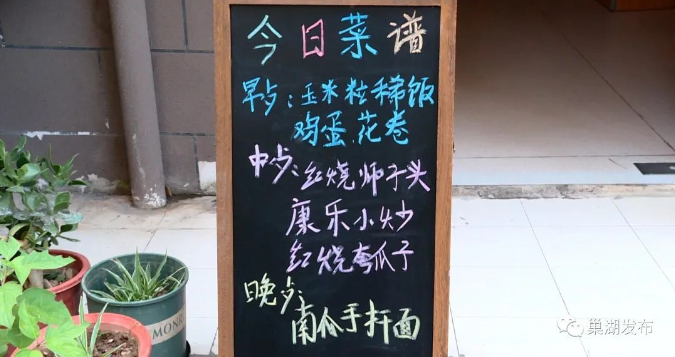 今日菜谱
早点:玉米粒稀饭
鸡蛋.花卷
中点:红烧师子头
康乐小炒
红烧夸瓜子
晚点:
南瓜手扞面
MONR
巢湖发布